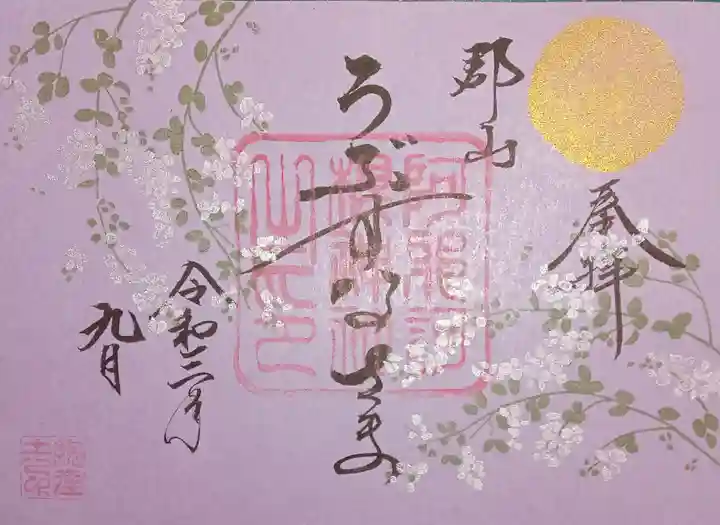 奉拝
郡山
うぶすなさま
令和三年
九月